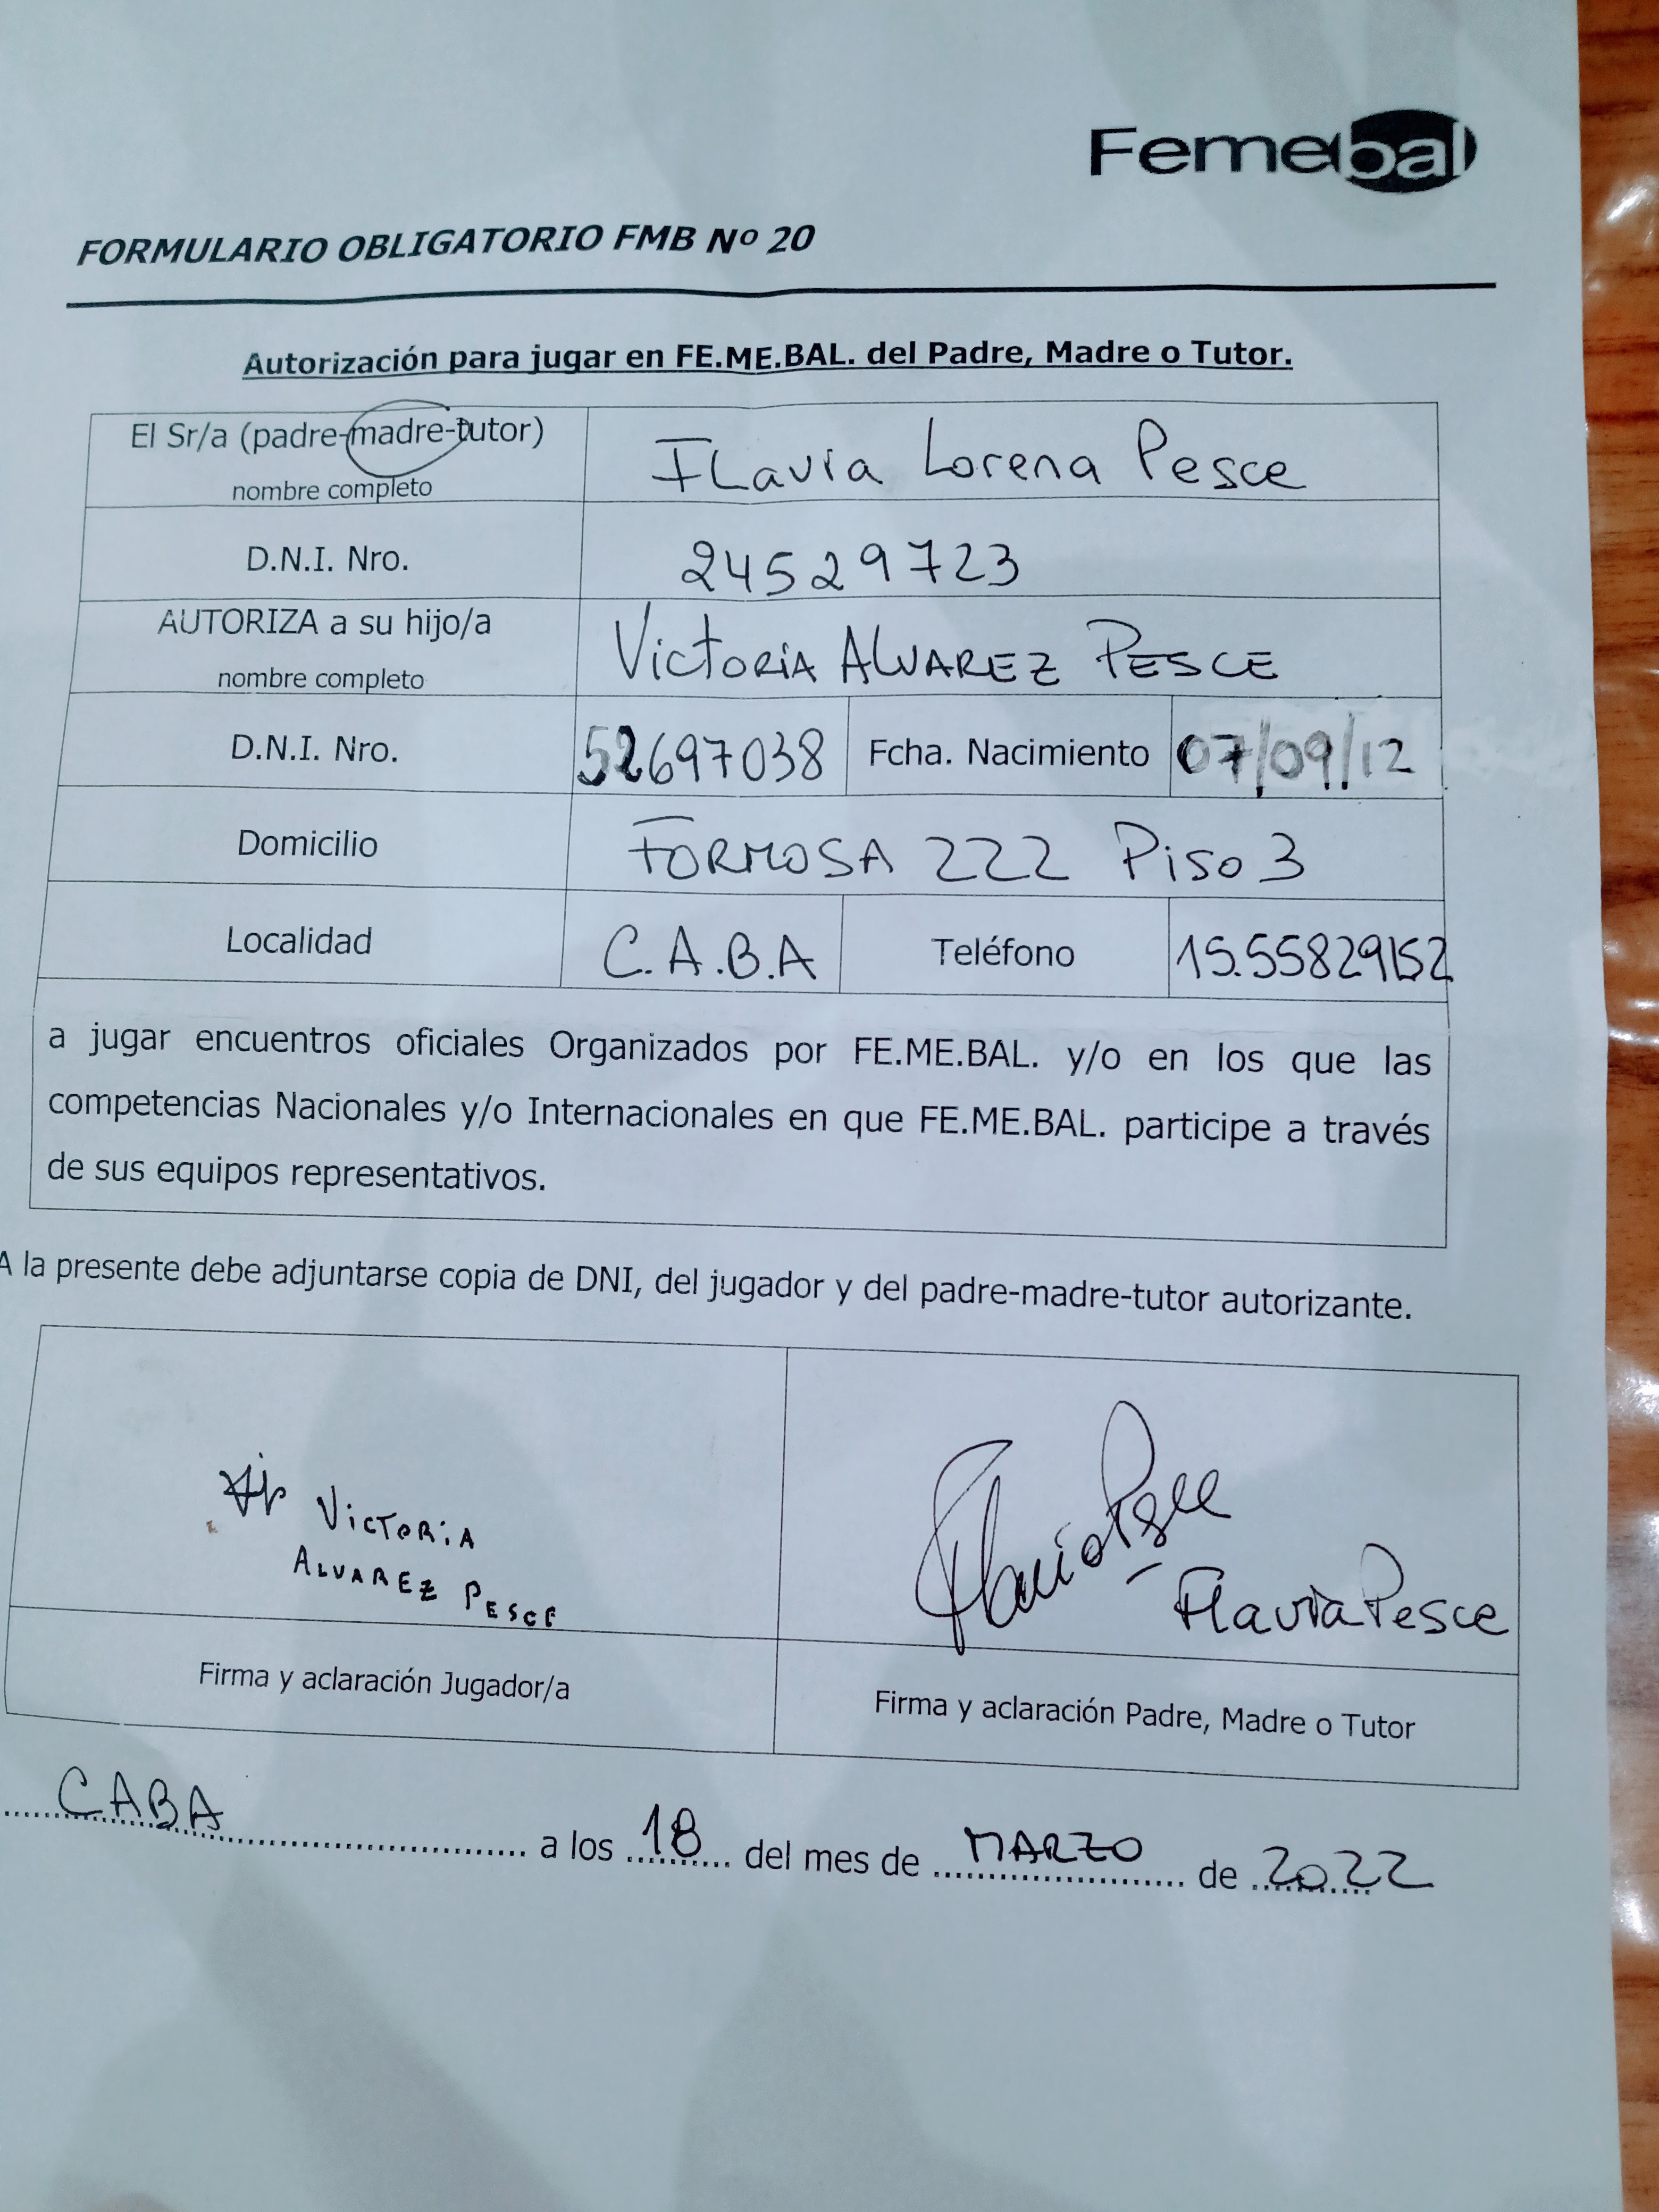 Femebal
FORMULARIO OBLIGATORIO FMB Nº 20
Autorización para jugar en FE.ME.BAL. del Padre, Madre o Tutor.
El Sr/a (padre-madre-tutor)
nombre completo
Flavia Lorena Pesce
D.N.I. Nro.
24529723
AUTORIZA a su hijo/a
nombre completo
Victoria Alvarez Pesce
D.N.I. Nro.
52697038
Fcha. Nacimiento
07/09/12
Domicilio
Formosa 222 Piso 3
Localidad
C.A.B.A
Teléfono
15.55829152
a jugar encuentros oficiales Organizados por FE.ME.BAL. y/o en los que las
competencias Nacionales y/o Internacionales en que FE.ME.BAL. participe a través
de sus equipos representativos.
A la presente debe adjuntarse copia de DNI, del jugador y del padre-madre-tutor autorizante.
Victoria
Alvarez Pesce
Flavia Pesce
Flavia Pesce
Firma y aclaración Jugador/a
Firma y aclaración Padre, Madre o Tutor
CABA a los 18 del mes de MARZO de 2022